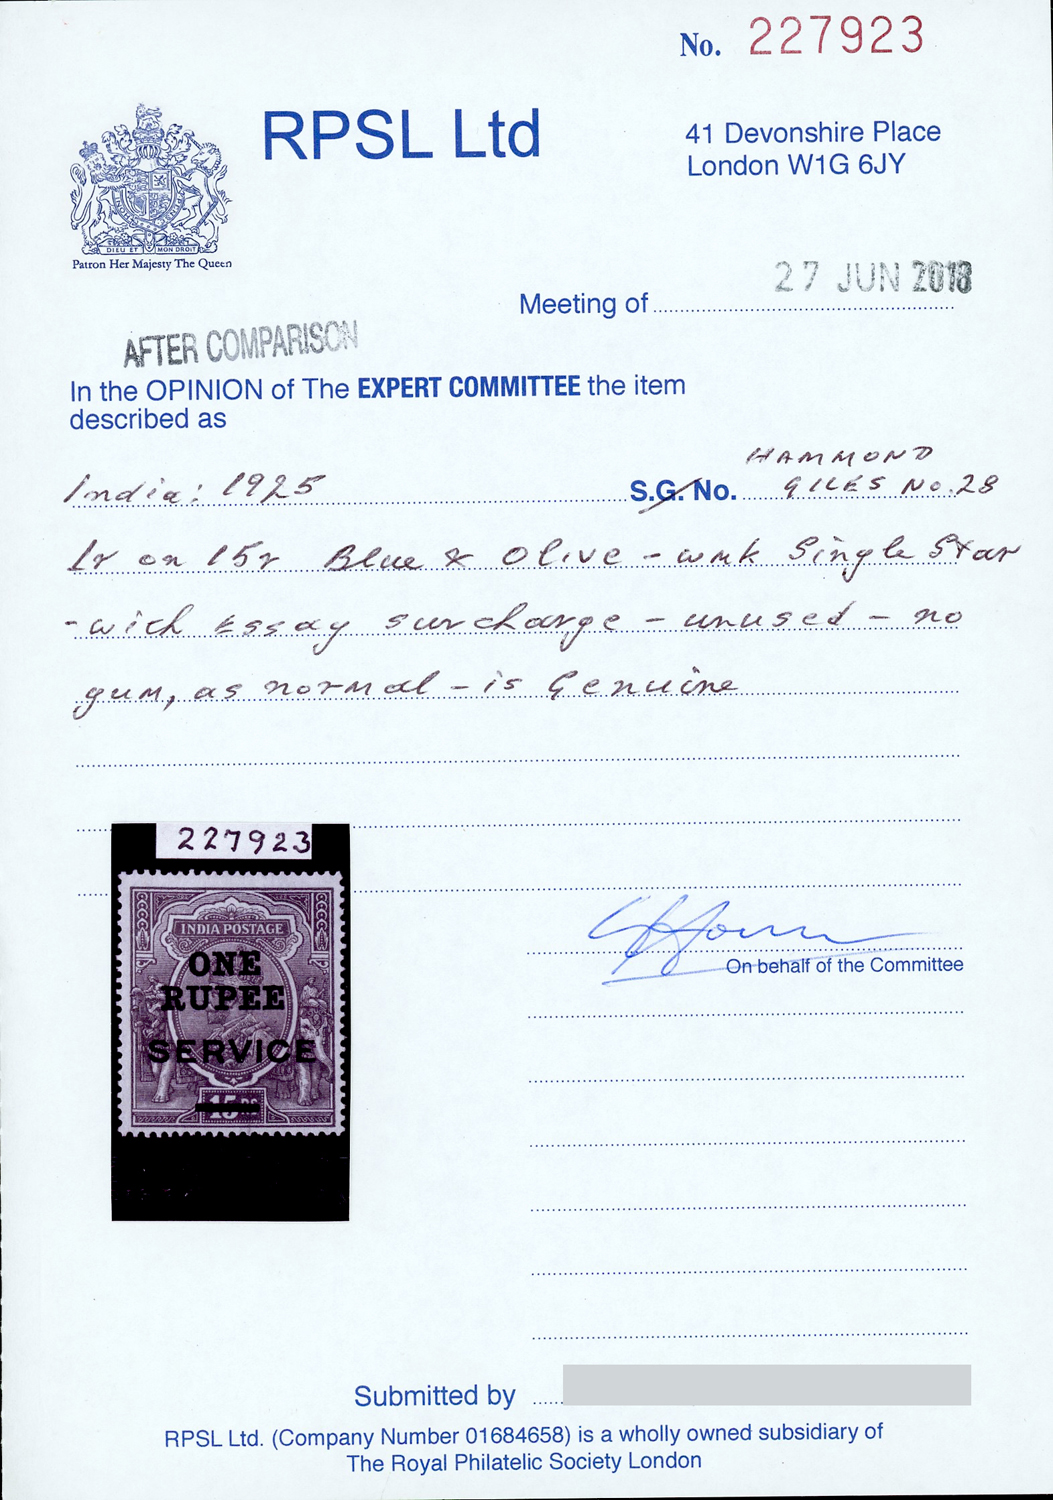 No. 227923
RPSL Ltd
41 Devonshire Place
London W1G 6JY
DIEU ET MON DROIT
Patron Her Majesty The Queen
27 JUN 2018
Meeting of
AFTER COMPARISON
In the OPINION of The EXPERT COMMITTEE the item
described as
HAMMOND
India: 1925 S.G. No. GILES No. 28
1r on 15r Blue & Olive - wmk Single Star
- with Essay surcharge - unused - no
gum, as normal - is Genuine
227923
INDIA POSTAGE
ONE
RUPEE
SERVICE
15 RS
On behalf of the Committee
Submitted by
RPSL Ltd. (Company Number 01684658) is a wholly owned subsidiary of
The Royal Philatelic Society London